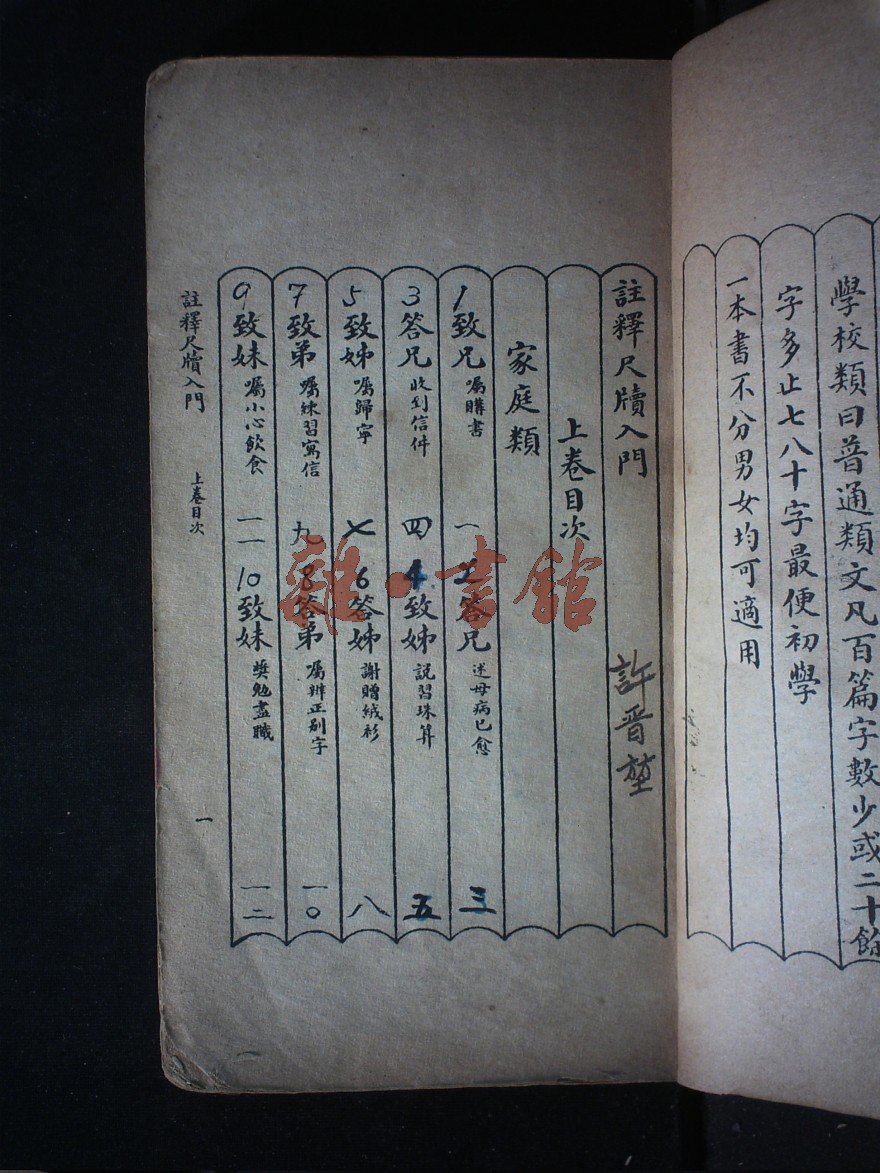 學校類曰普通類文凡百篇字數少或二十餘
字多止七八十字最便初學
一本書不分男女均可適用
註釋尺牘入門
許晋堃
上卷目次
家庭類
1 致兄 囑購書 一 2 答兄 述母病已愈 三
3 答兄 收到信件 四 4 致姊 説習珠算 五
5 致姊 囑歸寧 七 6 答姊 謝贈絨衫 八
7 致弟 囑練習寫信 九 8 答弟 囑辨正别字 一〇
9 致妹 囑小心飲食 一一 10 致妹 奬勉盡職 一二
註釋尺牘入門 上卷目次 一
雜·書館